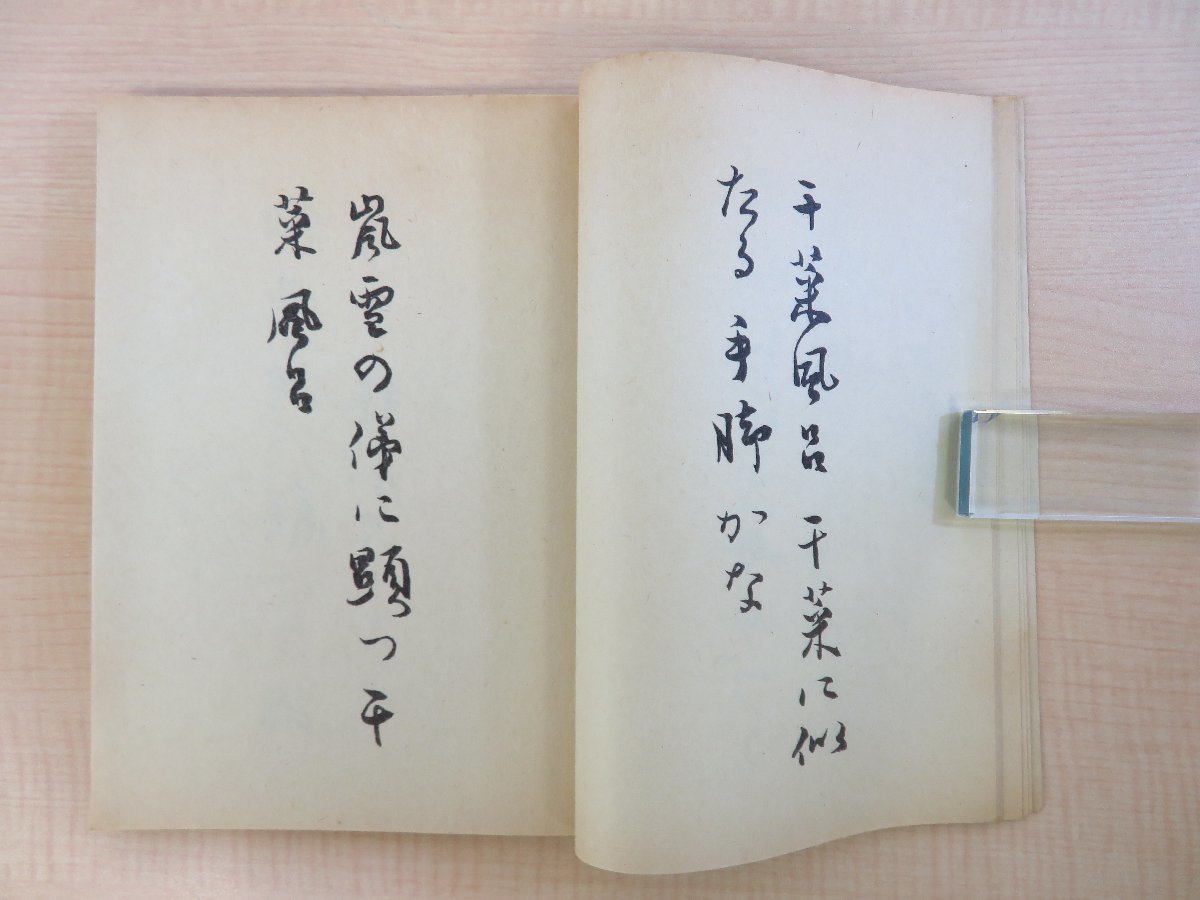 干菜風呂干菜に似
たる手脚かな
嵐雪の俤に顕つ干
菜風呂